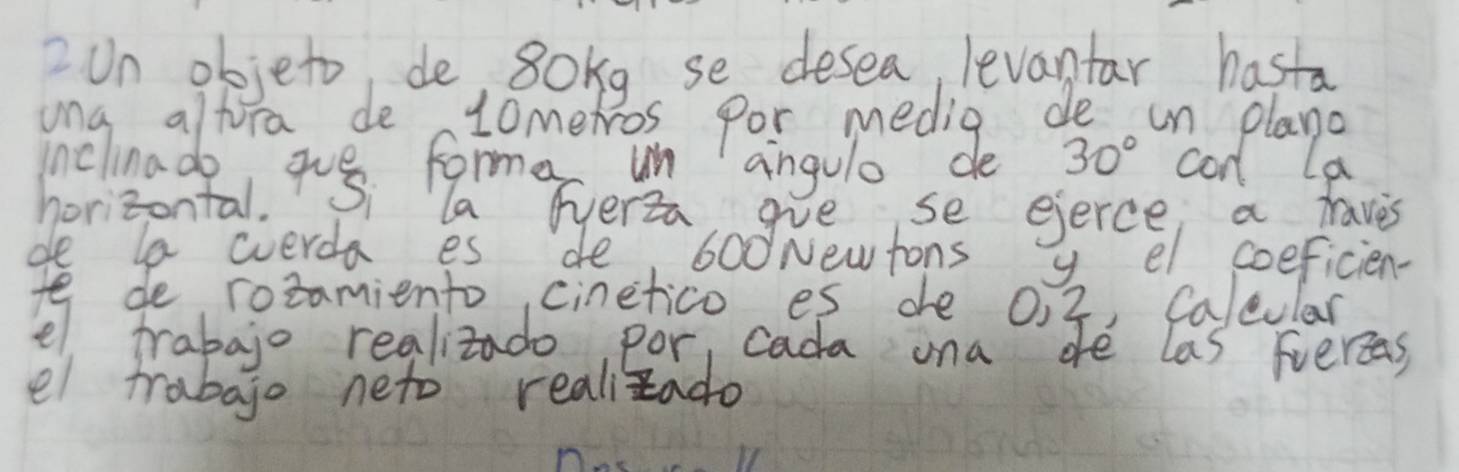 2 Un objeto, de 80kg se desea, levantar hasta
una altura de 10 metros por medio de un plano
inclinado, que forma un ángulo de 30° con la
horizontal. Si la fuerza que se ejerce, a través
de la cuerda es de 600 Newtons y el coeficien-
te de rozamiento, cinetico es de 0,2, calcular
el trabajo realizado, por, cada una de las fuerzas,
el trabajo neto realizado